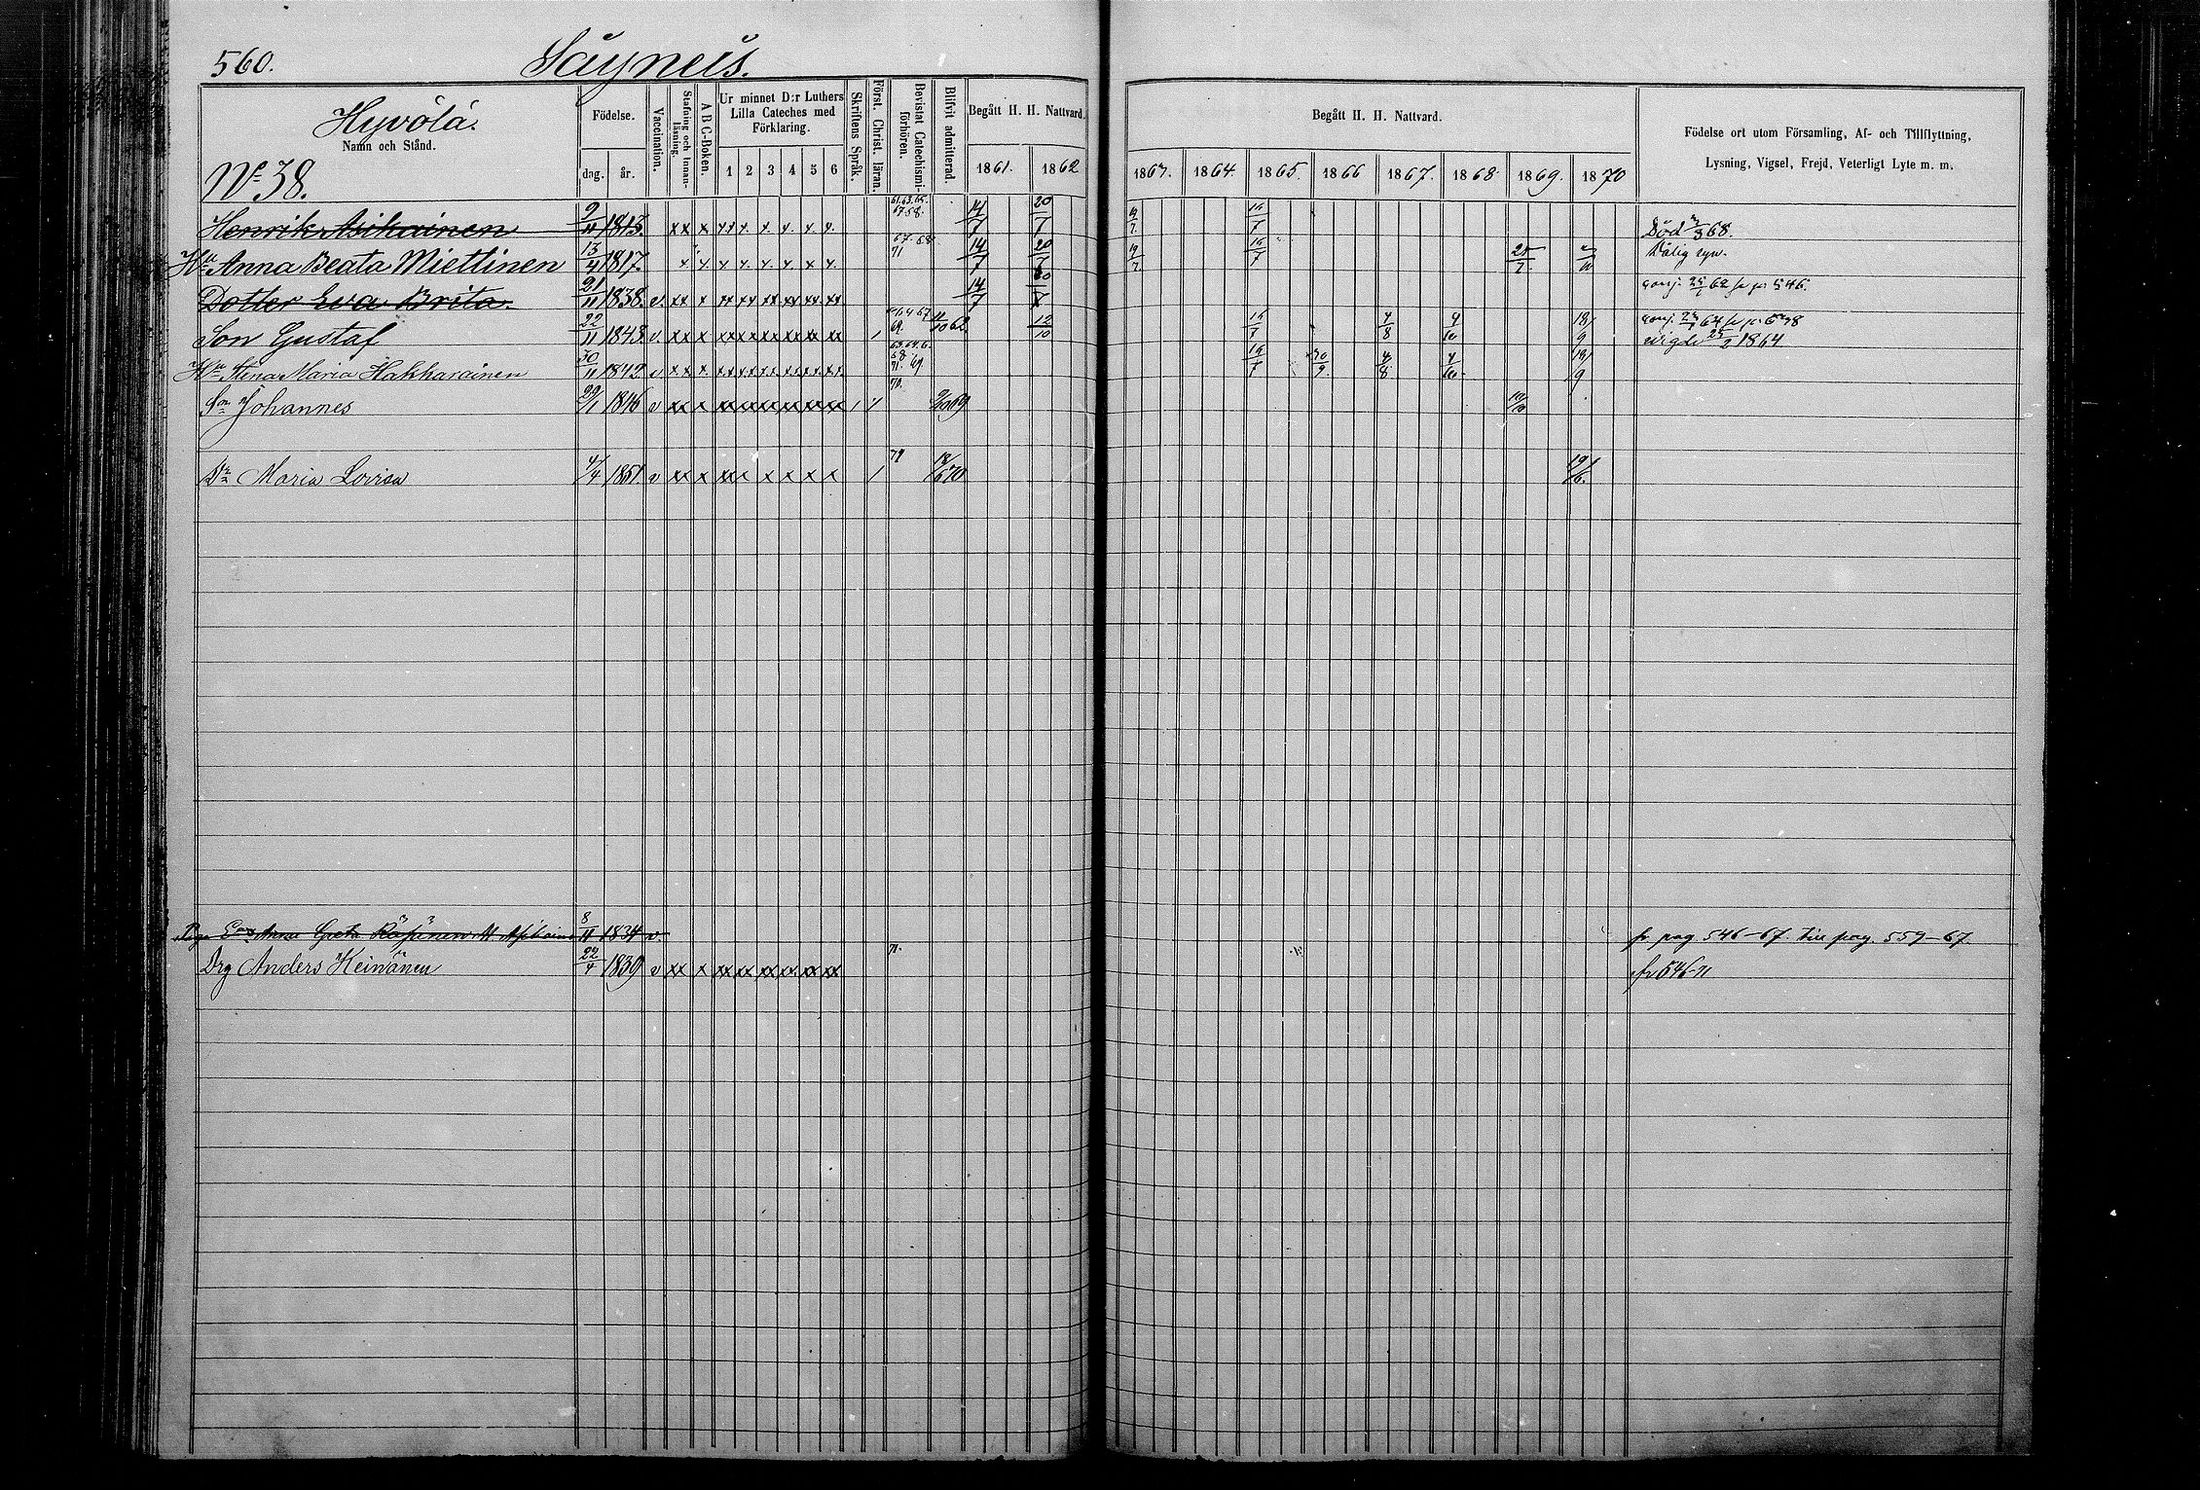 560. Säyneis.
Hyvölä.
Namn och Stånd.
N: 38.
Födelse.
dag. år.
Vaccination.
Stafning och Innan-läsning.
A B C-Boken.
Ur minnet D:r Luthers Lilla Cateches med Förklaring.
1 2 3 4 5 6
Skriftens Språk.
Först. Christ. läran.
Bevistat Catechismi-förhören.
Blifvit admitterad.
Begått H. H. Nattvard.
1861. 1862
Begått H. H. Nattvard.
1863. 1864. 1865. 1866 1867. 1868 1869. 1870
Födelse ort utom Församling, Af- och Tillflyttning,
Lysning, Vigsel, Frejd, Veterligt Lyte m. m.
Henrik Asikainen 9/11 1813. xx x x x x x x x 61.63.65. 67.68. 14/7 20/7 19/7 16/7 Död 68.
Hu Anna Beata Miettinen 13/4 1817. x x x x x x x x 67. 68 71 14/7 20/7 19/7 16/7 25/7 Dålig syn.
Dotter Eva Brita 21/11 1838. v. xx x xx xx xx xx xx xx 14/7 20/7 conj. 62 546.
Son Gustaf 22/11 1843. v. xx x xx xx xx xx xx xx 1 69. 11/10 62 12/10 16/7 4/8 4/10 18/9 conj. 64
vigde 25/2 1864
Hu Stina Maria Hakkarainen 30/11 1842 v xx x xx xx xx xx xx xx 68. 71. 69. 16/7 30/9 4/8 4/10 18/9
Son Johannes 29/1 1846 v xx x xx xx xx xx xx xx 1 1 70. 69 10/10
Dr Maria Lovisa 4/4 1851 v xx x xx x x x x x 1 71 70 19/6.
Anna Greta Räsänen 8/11 1834 v. fr pag 546-67. till pag. 559-67
Drg Anders Keinänen 22/4 1839 v xx x xx xx xx xx xx xx 71. fr 546-71